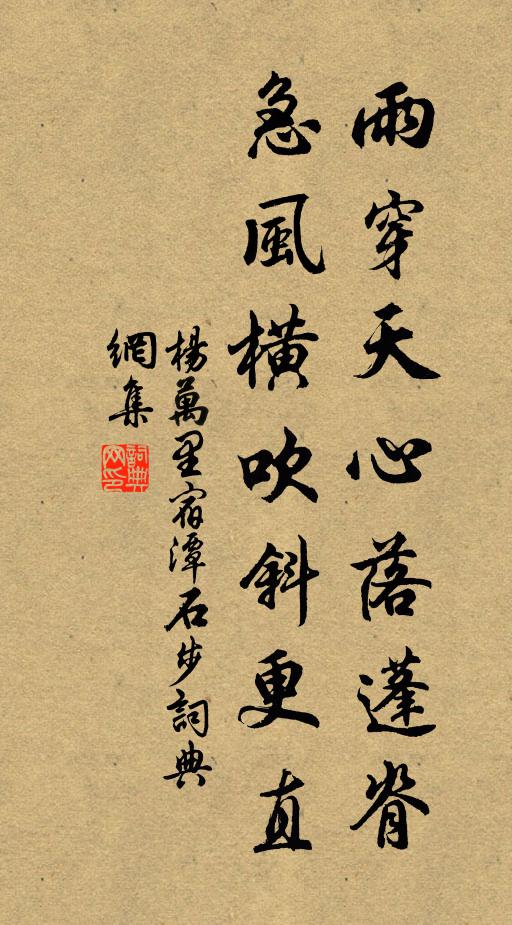 雨穿天心落蓬脊
急風橫吹斜更直
楊萬里宿潭石步詞典
網集
詞典网印